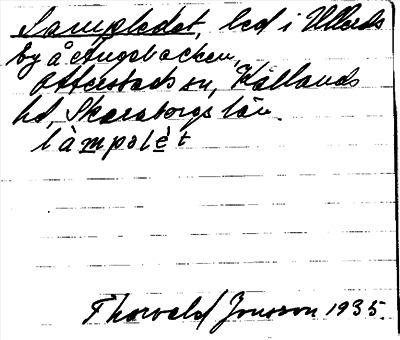 Lampledet, led i Ulleds
by å Ängebacken,
Otterstads sn, Kållands
hd, Skaraborgs län.
làmpəlèt
Thorvald Jonsson 1935.